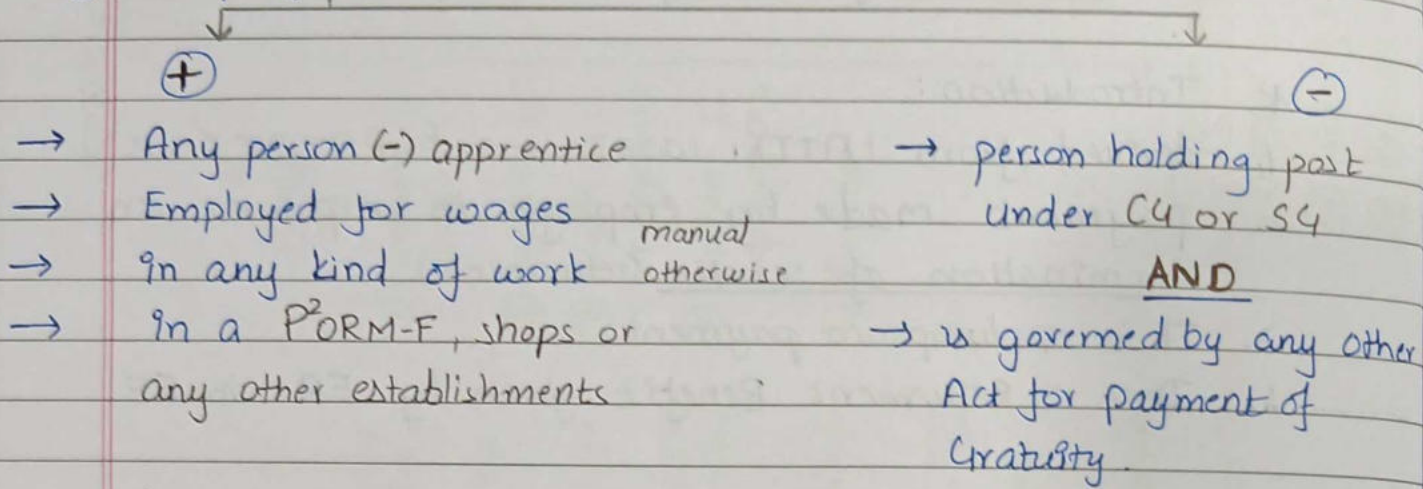 (+)
(-)
→ Any person (-) apprentice
→ Employed for wages
manual
→ in any kind of work otherwise
→ in a P²ORM-F, shops or
any other establishments
→ person holding post
under CG or SG
AND
→ is governed by any other
Act for payment of
Gratuity.